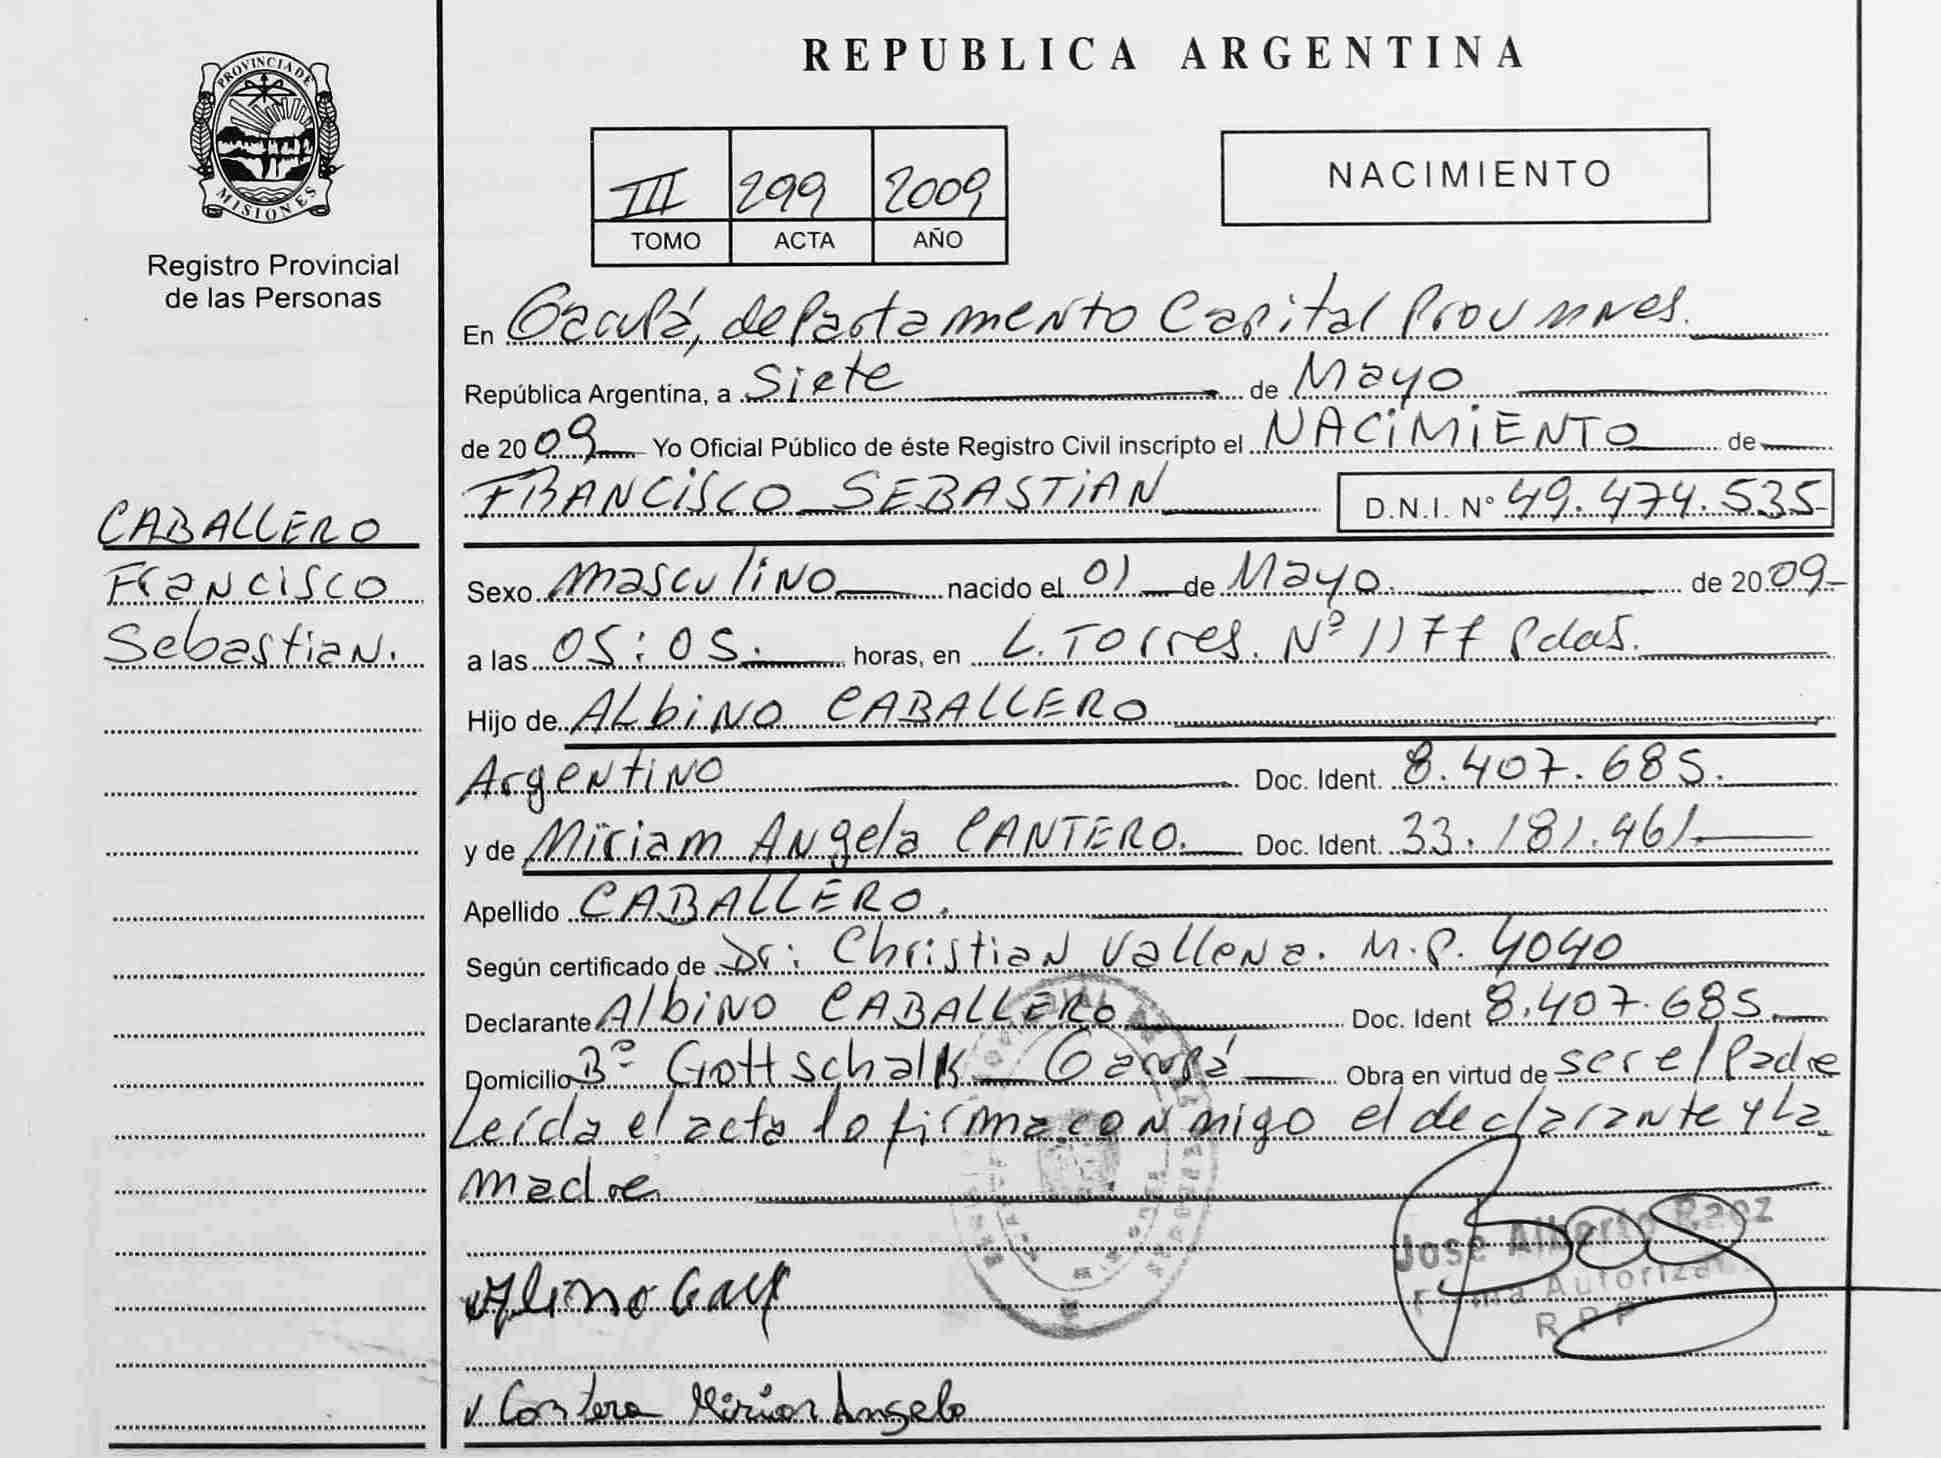 PROVINCIA DE
MISIONES
Registro Provincial
de las Personas
CABALLERO
Francisco
Sebastian.
REPUBLICA ARGENTINA
III 299 2009
TOMO ACTA AÑO
NACIMIENTO
En Garupá, departamento Capital Prov Mnes.
República Argentina, a Siete de Mayo
de 2009 Yo Oficial Público de éste Registro Civil inscripto el NACIMIENTO de
FRANCISCO SEBASTIAN D.N.I. N° 49.474.535
Sexo masculino nacido el 01 de Mayo. de 2009
a las 05:05. horas, en L. Torres. Nº 1177 Pdas.
Hijo de ALbiNO CABALLERO
Argentino Doc. Ident. 8.407.685.
y de Miriam Angela CANTERO. Doc. Ident. 33.181.461.
Apellido CABALLERO.
Según certificado de Dr: Christian Vallena. M.P. 4040
Declarante Albino CABALLERO Doc. Ident 8.407.685
Domicilio Bº Gottschalk Garupá Obra en virtud de ser el Padre
Leída el acta lo firma conmigo el declarante y La
madre
Jose Alberto Baez
Firma Autoriza
R P P
Cantero Mirian Angela